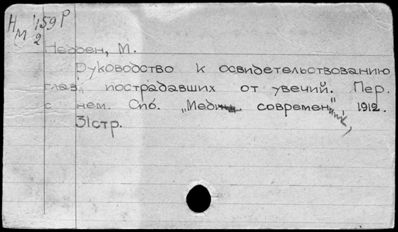 Н 159 Р
М 2
Нерден, М.
Руководство к освидетельствованию
глаз, пострадавших от увечий. Пер.
с нем. Спб. „Медиц. современ." 1912.
31стр.